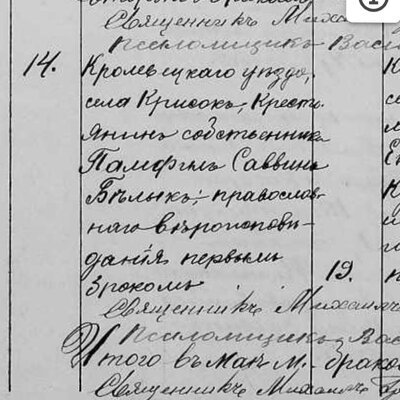 Священникъ Михаил
Псаломщикъ Васи
14. Кролевецкаго уѣзда,
села Крисокъ, Крестья
янинъ собственникъ
Памфилъ Саввинъ
Бѣлыкъ, православ-
наго вѣроисповѣ-
данія первымъ
бракомъ
19.
Священникъ Михаилъ
Псаломщикъ Вас
Итого въ маѣ м. брако
Священникъ Михаилъ